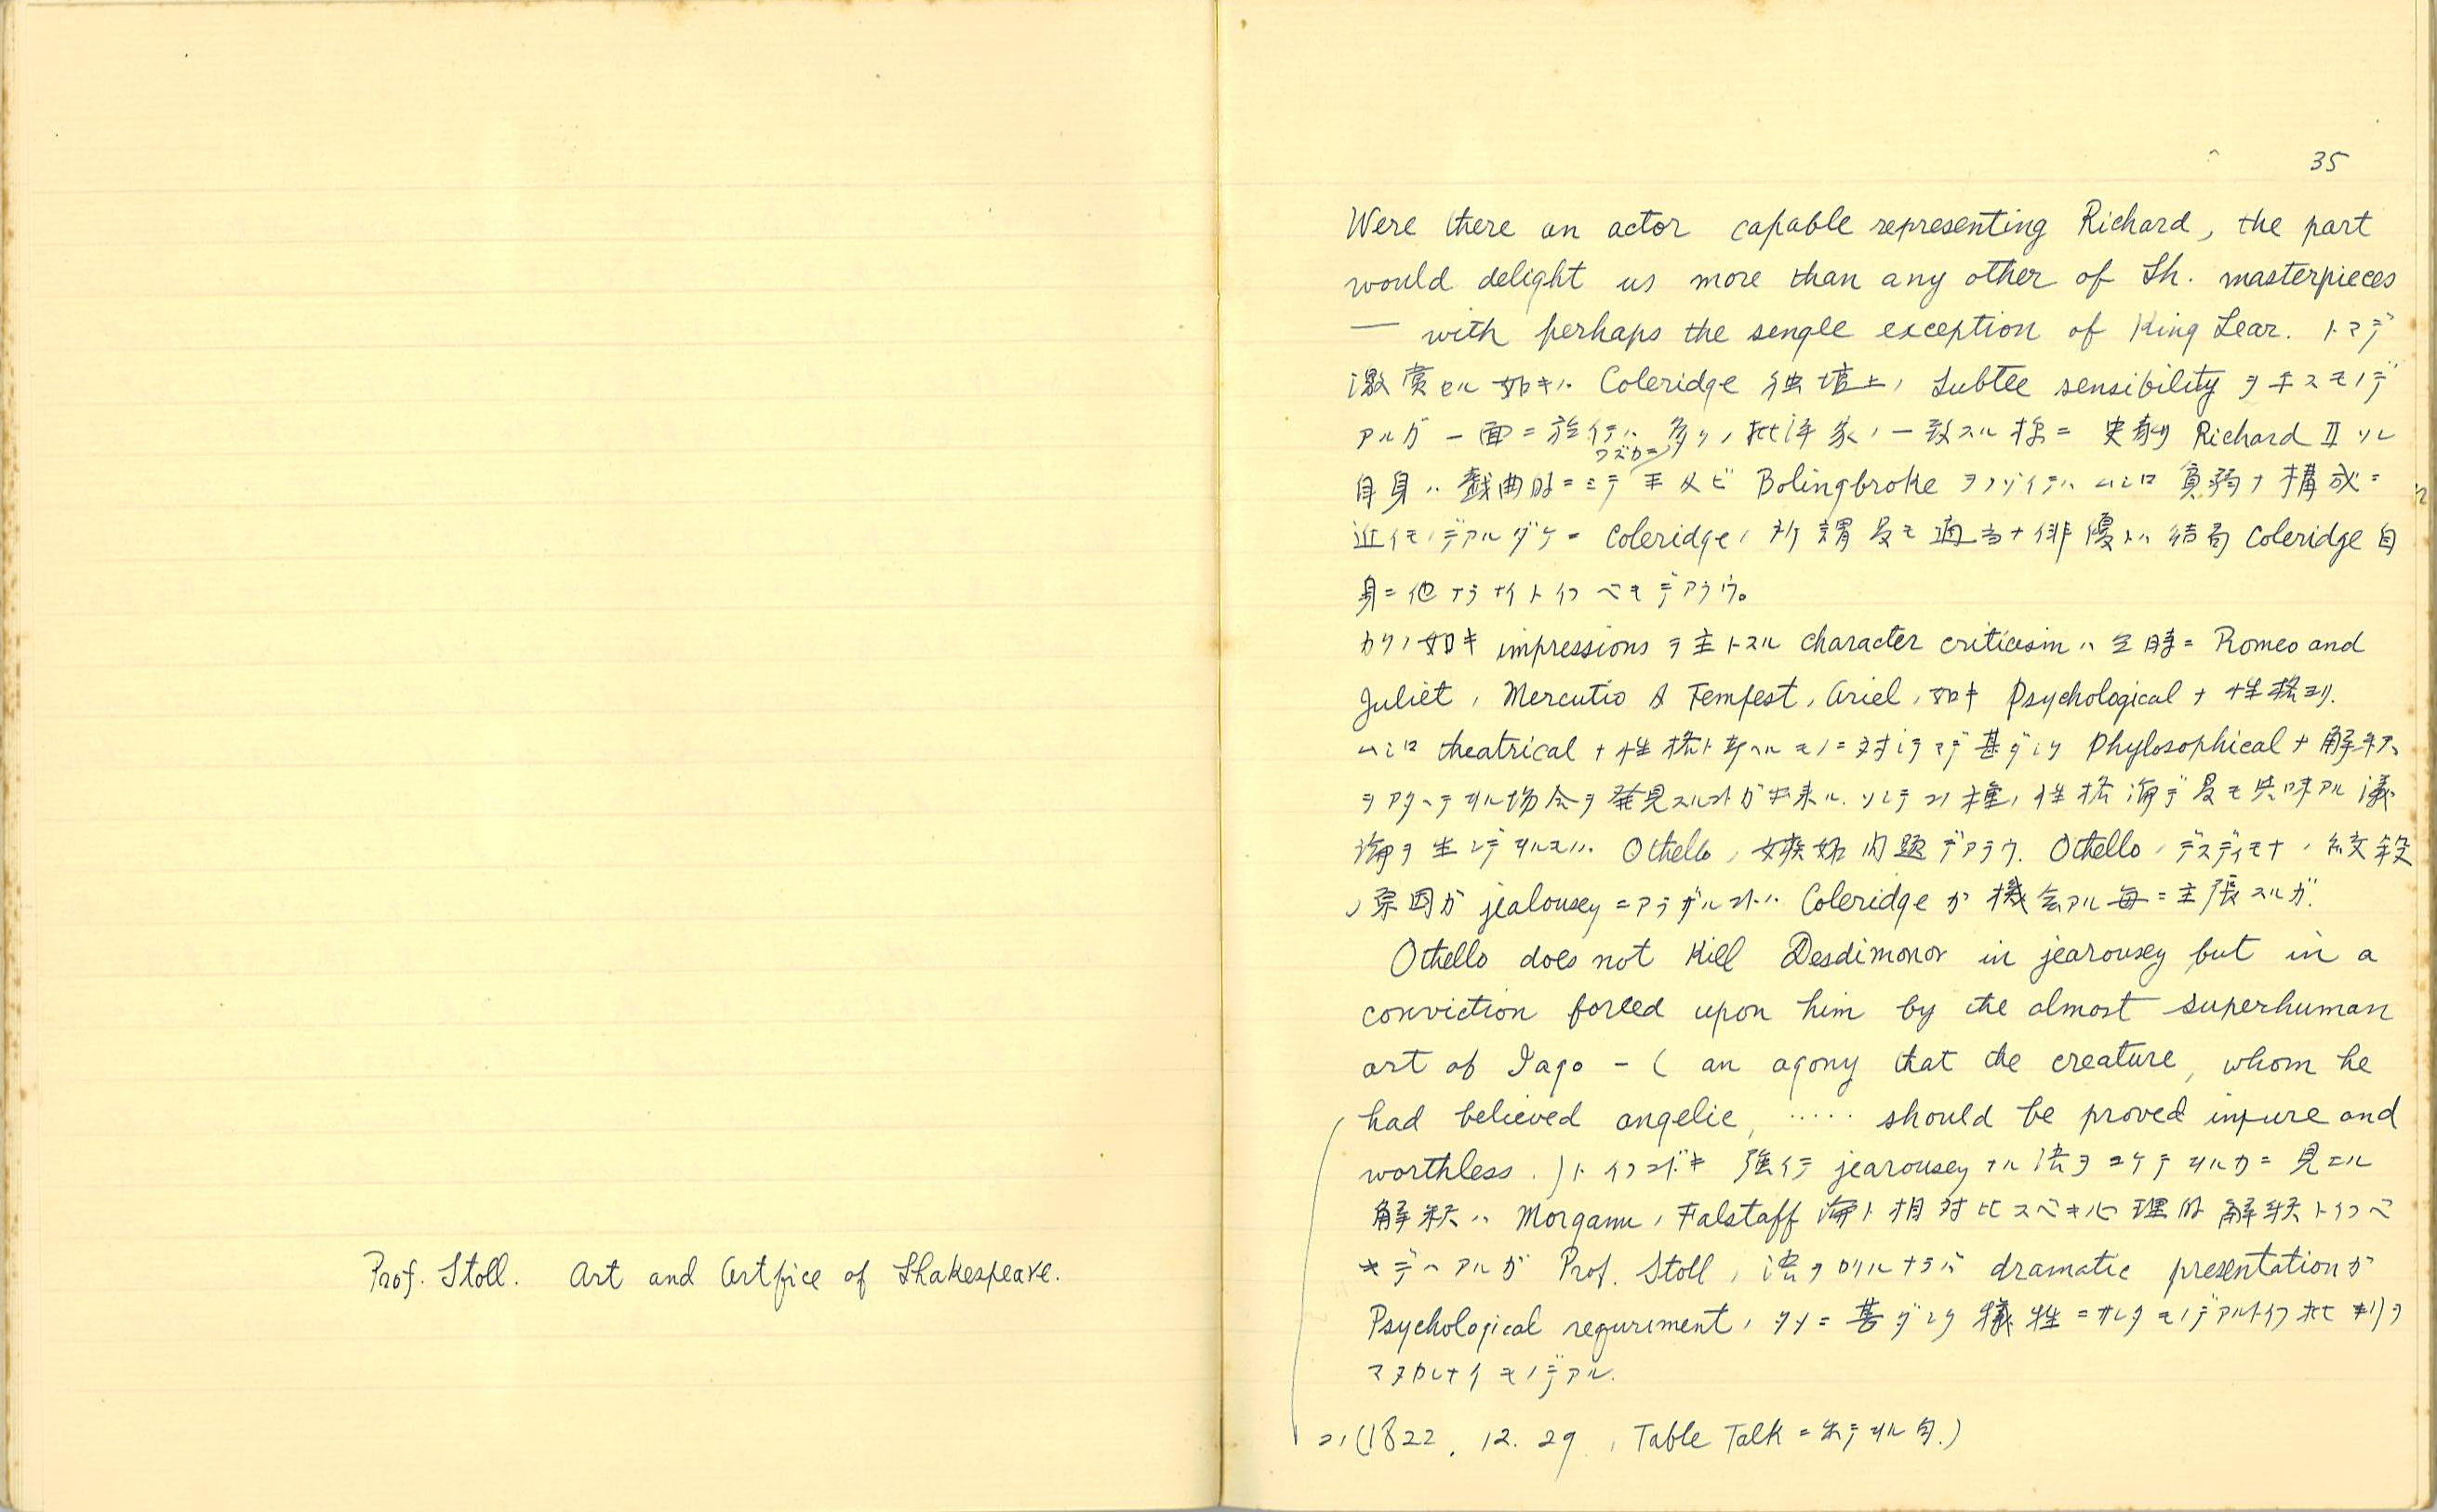 Prof. Stoll. Art and Artfice of Shakespeare.
35
Were there an actor capable representing Richard, the part
would delight us more than any other of Sh. masterpieces
— with perhaps the sengle exception of King Lear. トマデ
激賞セル如キハ Coleridge 独壇上ノ Subtle sensibility ヲ示スモノデ
アルガ一面ニ於イテハ多クノ批評家ノ一致スル様ニ史劇 Richard II ソレ
自身ハ戯曲的ニミテ王及ビ Bolingbroke ヲノゾイテハムシロ貧弱ナ構成ニ
ワズカニ
近イモノデアルダケニ Coleridge ノ所謂最モ適当ナ俳優トハ結局 Coleridge 自
身ニ他ナラナイトイフベキデアラウ。
カクノ如キ impressions ヲ主トスル character criticism ハ同時ニ Romeo and
Juliet ノ Mercutio 及 Tempest ノ Ariel ノ如キ Psychological ナ性格ヨリ
ムシロ theatrical ナ性格ト考ヘルモノニ対シテマデ甚ダシク Phylosophical ナ解釈
ヲアタヘテヰル場合ヲ発見スルコトガ出来ル. ソシテコノ種ノ性格論デ最モ興味アル議
論ヲ生ンデヰルコハ Othello ノ嫉妬問題デアラウ. Othello ノデスディモナノ絞殺
ノ原因ガ jealousey ニアラザルコトハ Coleridge ガ機会アル毎ニ主張スルガ.
Othello does not kill Desdimonor in jearousey but in a
conviction forced upon him by the almost superhuman
art of Iago - ( an agony that the creature, whom he
had believed angelic, ..... should be proved impure and
worthless. )トイフゴトキ強イテ jearousey ナル語ヲヨケテヰルカニ見エル
解釈ハ Morgann ノ Falstaff 論ト相対比スベキ心理的解釈トイフベ
キデハアルガ Prof. Stoll ノ語ヲカリルナラバ dramatic presentation ガ
Psychological requriment ノタメニ甚ダシク犠牲ニサレタモノデアルトイフ批判ヲ
マヌカレナイモノデアル.
コノ(1822. 12. 29 ノ Table Talk ニ出テヰル句.)